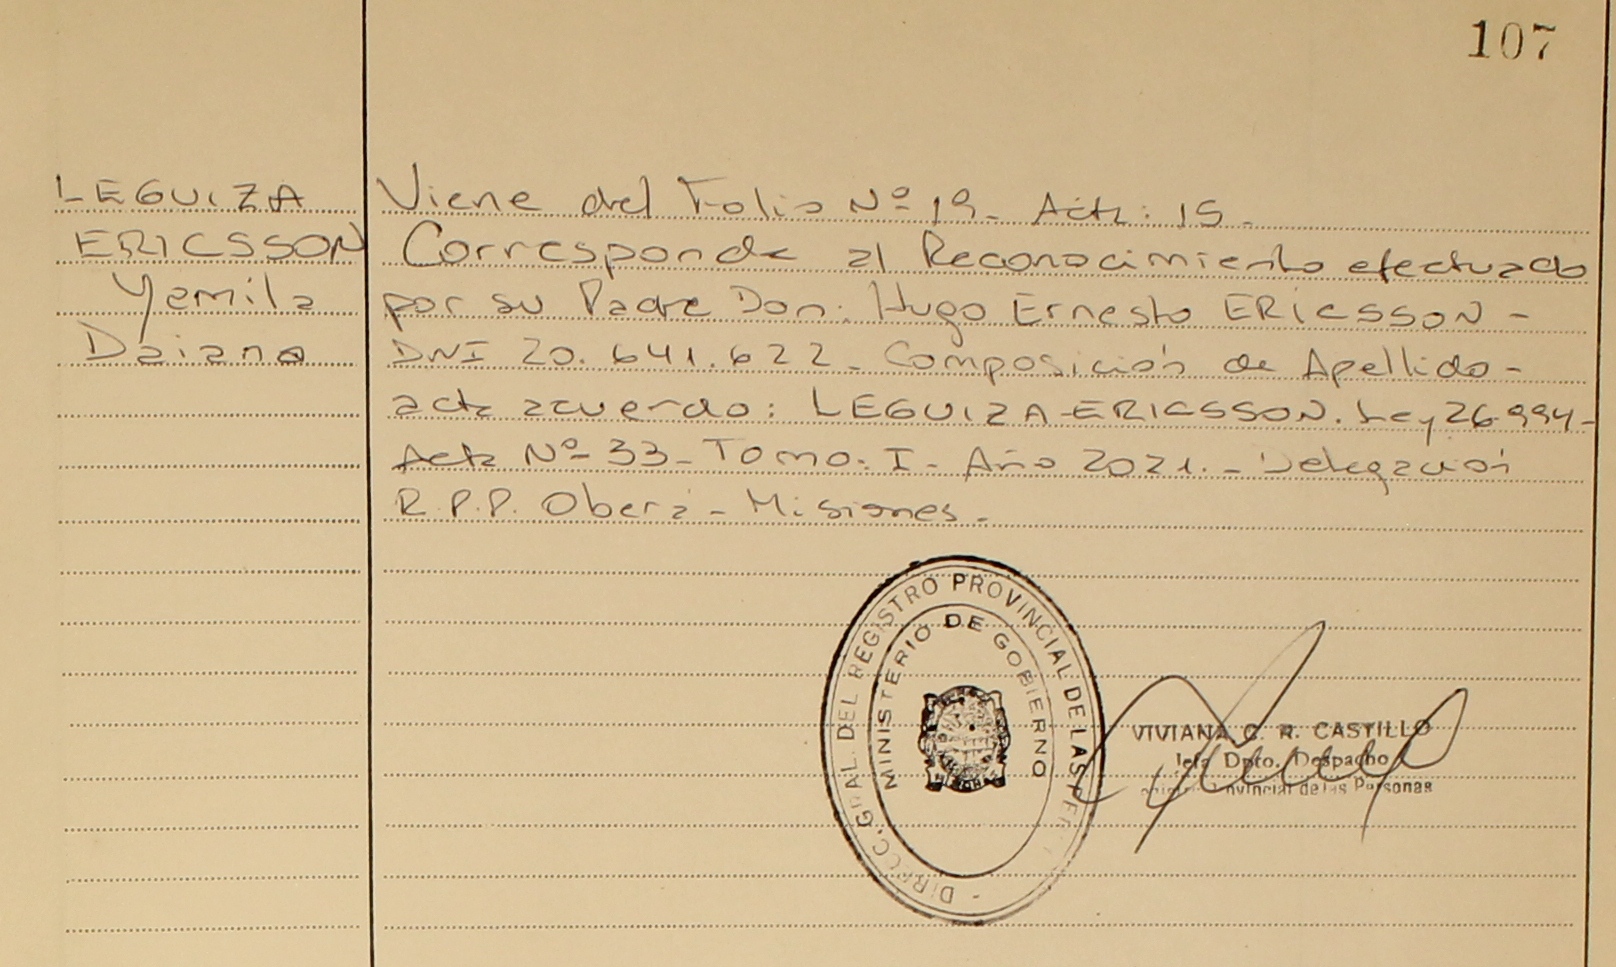 107
LEGUIZA
ERICSSON
Yamila
Daiana
Viene del Folio Nº 19. Acta: 15.
Corresponde al Reconocimiento efectuado
por su Padre Don: Hugo Ernesto ERICSSON -
DNI 20.641.622. Composición de Apellido -
acta acuerdo: LEGUIZA-ERICSSON. Ley 26.994-
Acta Nº 33 - Tomo: I - Año 2021. - Delegación
R.P.P. Oberá - Misiones.
DIRECC. GRAL. DEL REGISTRO PROVINCIAL DE LAS
MINISTERIO DE GOBIERNO
VIVIANA C. R. CASTILLO
Jefa Dpto. Despacho
Provincial de las Personas